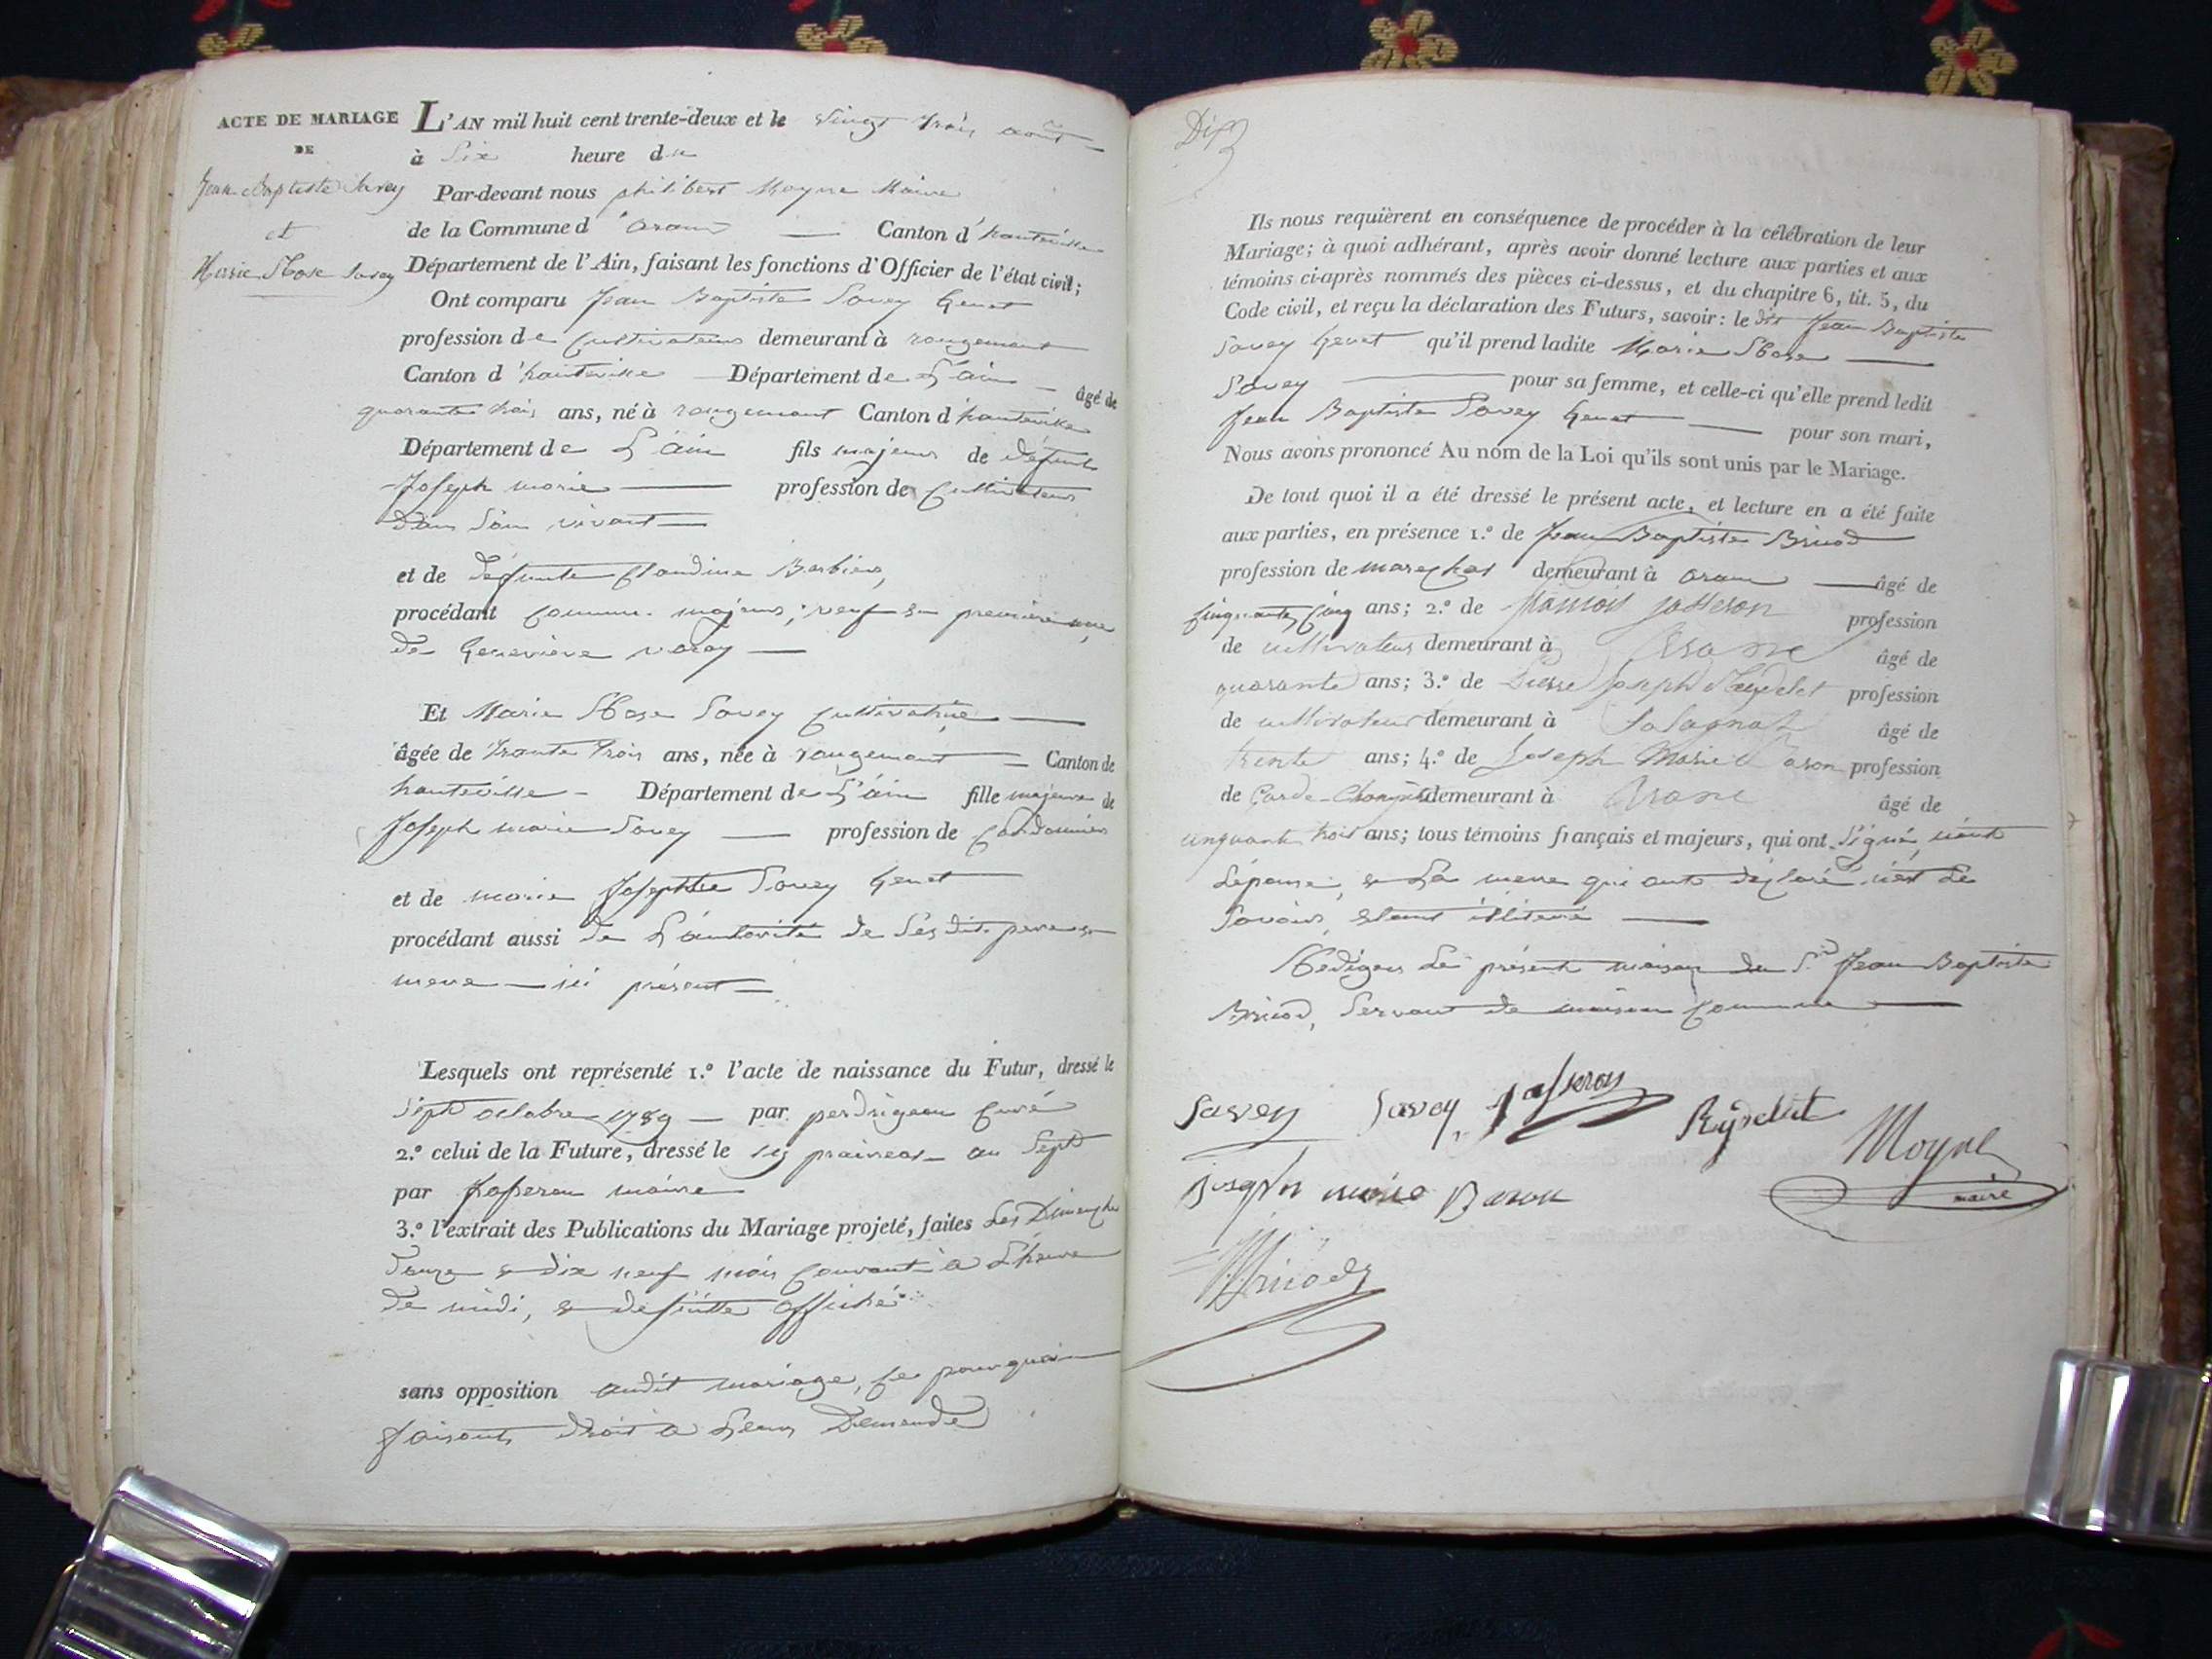 ACTE DE MARIAGE
DE
Jean Baptiste Savey
et
Marie Rose Savey
L'AN mil huit cent trente-deux et le vingt trois août
à Six heure du
Par-devant nous philibert Moyne Maire
de la Commune d'aranc Canton d'hauteville
Département de l'Ain, faisant les fonctions d'Officier de l'état civil;
Ont comparu Jean Baptiste Savey Genet
profession de Cultivateur demeurant à rougemont
Canton d'hauteville Département de L'ain âgé de
quarante trois ans, né à rougemont Canton d'hauteville
Département de L'ain fils majeur de défunt
Joseph marie profession de Cultivateur
Dans Son vivant
et de défunte Claudine Barbier,
procédant Comme majeur; veuf en première
de Genevieve
Et Marie Rose Savey Cultivatrice
âgée de trante trois ans, née à rougemont Canton de
hauteville Département de L'ain fille majeure de
Joseph marie Savey profession de Cordonnier
et de marie Josephte Savey Genet
procédant aussi de L'autorité de Sesdit pere &
mere ici présent
Lesquels ont représenté 1.° l'acte de naissance du Futur, dressé le
Sept octobre 1789 par perdrigeon Curé
2.° celui de la Future, dressé le Six praireal an Sept
par Jasseron maire
3.° l'extrait des Publications du Mariage projeté, faites Les Dimanches
Douze & dix neuf mois Courant à L'heure
de midi, & desuitte affiché
sans opposition audit mariage, Ce pourquoi
faisant droit a Leur Demande
Ils nous requièrent en conséquence de procéder à la célébration de leur
Mariage; à quoi adhérant, après avoir donné lecture aux parties et aux
témoins ci-après nommés des pièces ci-dessus, et du chapitre 6, tit. 5, du
Code civil, et reçu la déclaration des Futurs, savoir: le dit Jean Baptiste
Savey Genet qu'il prend ladite Marie Rose
Savey pour sa femme, et celle-ci qu'elle prend ledit
Jean Baptiste Savey Genet pour son mari,
Nous avons prononcé Au nom de la Loi qu'ils sont unis par le Mariage.
De tout quoi il a été dressé le présent acte, et lecture en a été faite
aux parties, en présence 1.° de Jean Baptiste Bricod
profession de marechal demeurant à aranc âgé de
Cinquante Cinq ans; 2.° de françois jasseron profession
de cultivateur demeurant à Aranc âgé de
quarante ans; 3.° de Pierre Joseph Reydelet profession
de cultivateur demeurant à âgé de
trente ans; 4.° de Joseph Marie Baron profession
de Garde-Champêtre demeurant à Aranc âgé de
cinquante trois ans; tous témoins français et majeurs, qui ont Signé, non
L'épouse, & La mere qui ont déclaré ne Le
Savoir, étant illiteré
Rédigeur Le présent maison du S.r Jean Baptiste
Bricod, Servant de maison Commune
Savey Savey Jasseron Reydelet Moyne
maire
Joseph marie Baron
Bricod